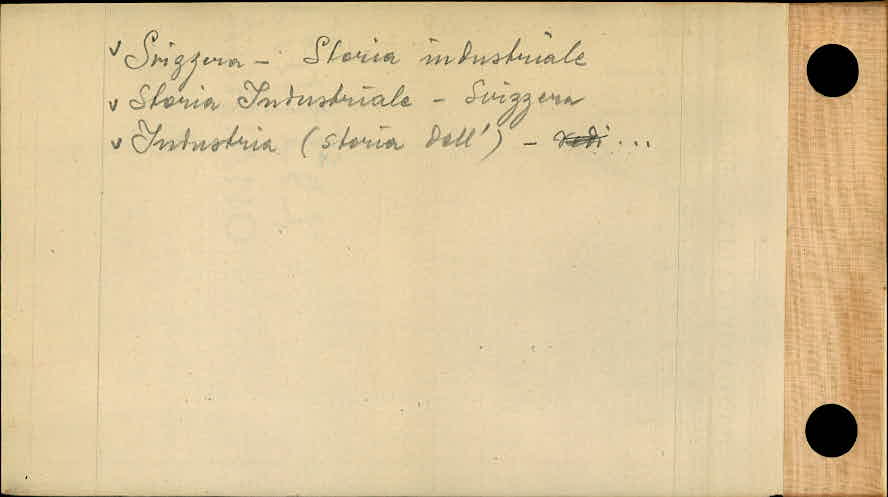 v Svizzera - Storia industriale
v Storia Industriale - Svizzera
v Industria (storia dell') - vedi ...